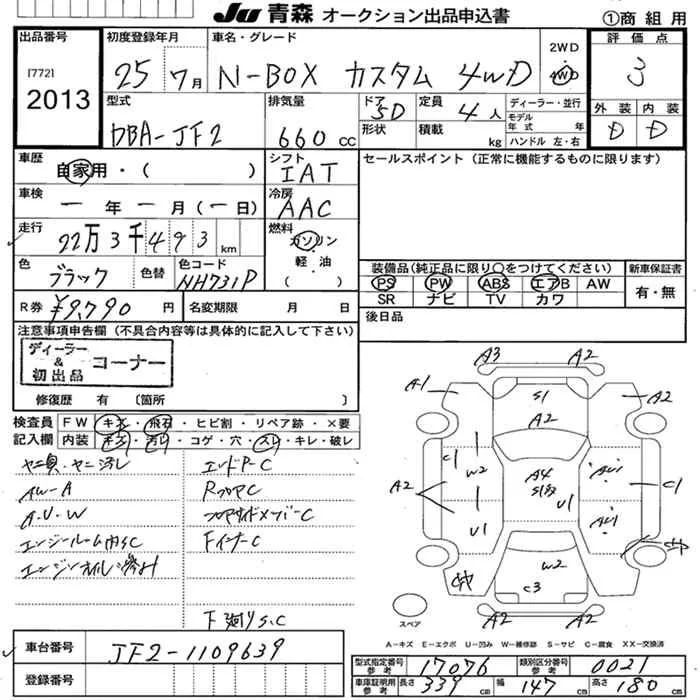 JU 青森 オークション出品申込書
①商組用
出品番号
[772]
2013
初度登録年月
25 7月
車名・グレード
N-BOX カスタム 4WD
2WD
4WD
評価点
3
外装 内装
D D
型式
DBA-JF2
排気量
660 cc
ドア
5D
形状
定員
4人
積載
kg
ディーラー・並行
モデル
年式 年
ハンドル 左・右
車歴
自家用・( )
シフト
IAT
セールスポイント(正常に機能するものに限ります)
車検
一年一月(一日)
冷房
AAC
走行
22万3千493km
燃料
ガソリン
軽油
( )
色
ブラック
色替
色コード
NH731P
装備品(純正品に限り○をつけてください)
PS PW ABS エアB AW
SR ナビ TV カワ
新車保証書
有・無
R券 ¥9,790 円
名変期限 月 日
後日品
注意事項申告欄(不具合内容等は具体的に記入して下さい)
ディーラー
&
初出品
コーナー
修復歴 有 〔箇所 〕
検査員
記入欄
FW キズ・飛石・ヒビ割・リペア跡・×要
内装 キズ・汚れ・コゲ・穴・スレ・キレ・破レ
AW-A
A.U.W
エンジンルーム内S.C
エンドP-C
RフロアC
フロアサイドメンバーC
Fインナー-C
下廻りS.C
A3 A2
A1 S1 A2
A2
C1 W2 A4 AU1 C1
A2 U1 U1 AU1
W2
C3
A2 A2
スペア
A-キズ E-エクボ U-凹み W-補修跡 S-サビ C-腐食 XX-交換済
車台番号
JF2-1109639
登録番号
型式指定番号
参考
17076
類別区分番号
参考
0021
車庫証明用
参考
長さ 339cm 幅 147cm 高さ 180cm